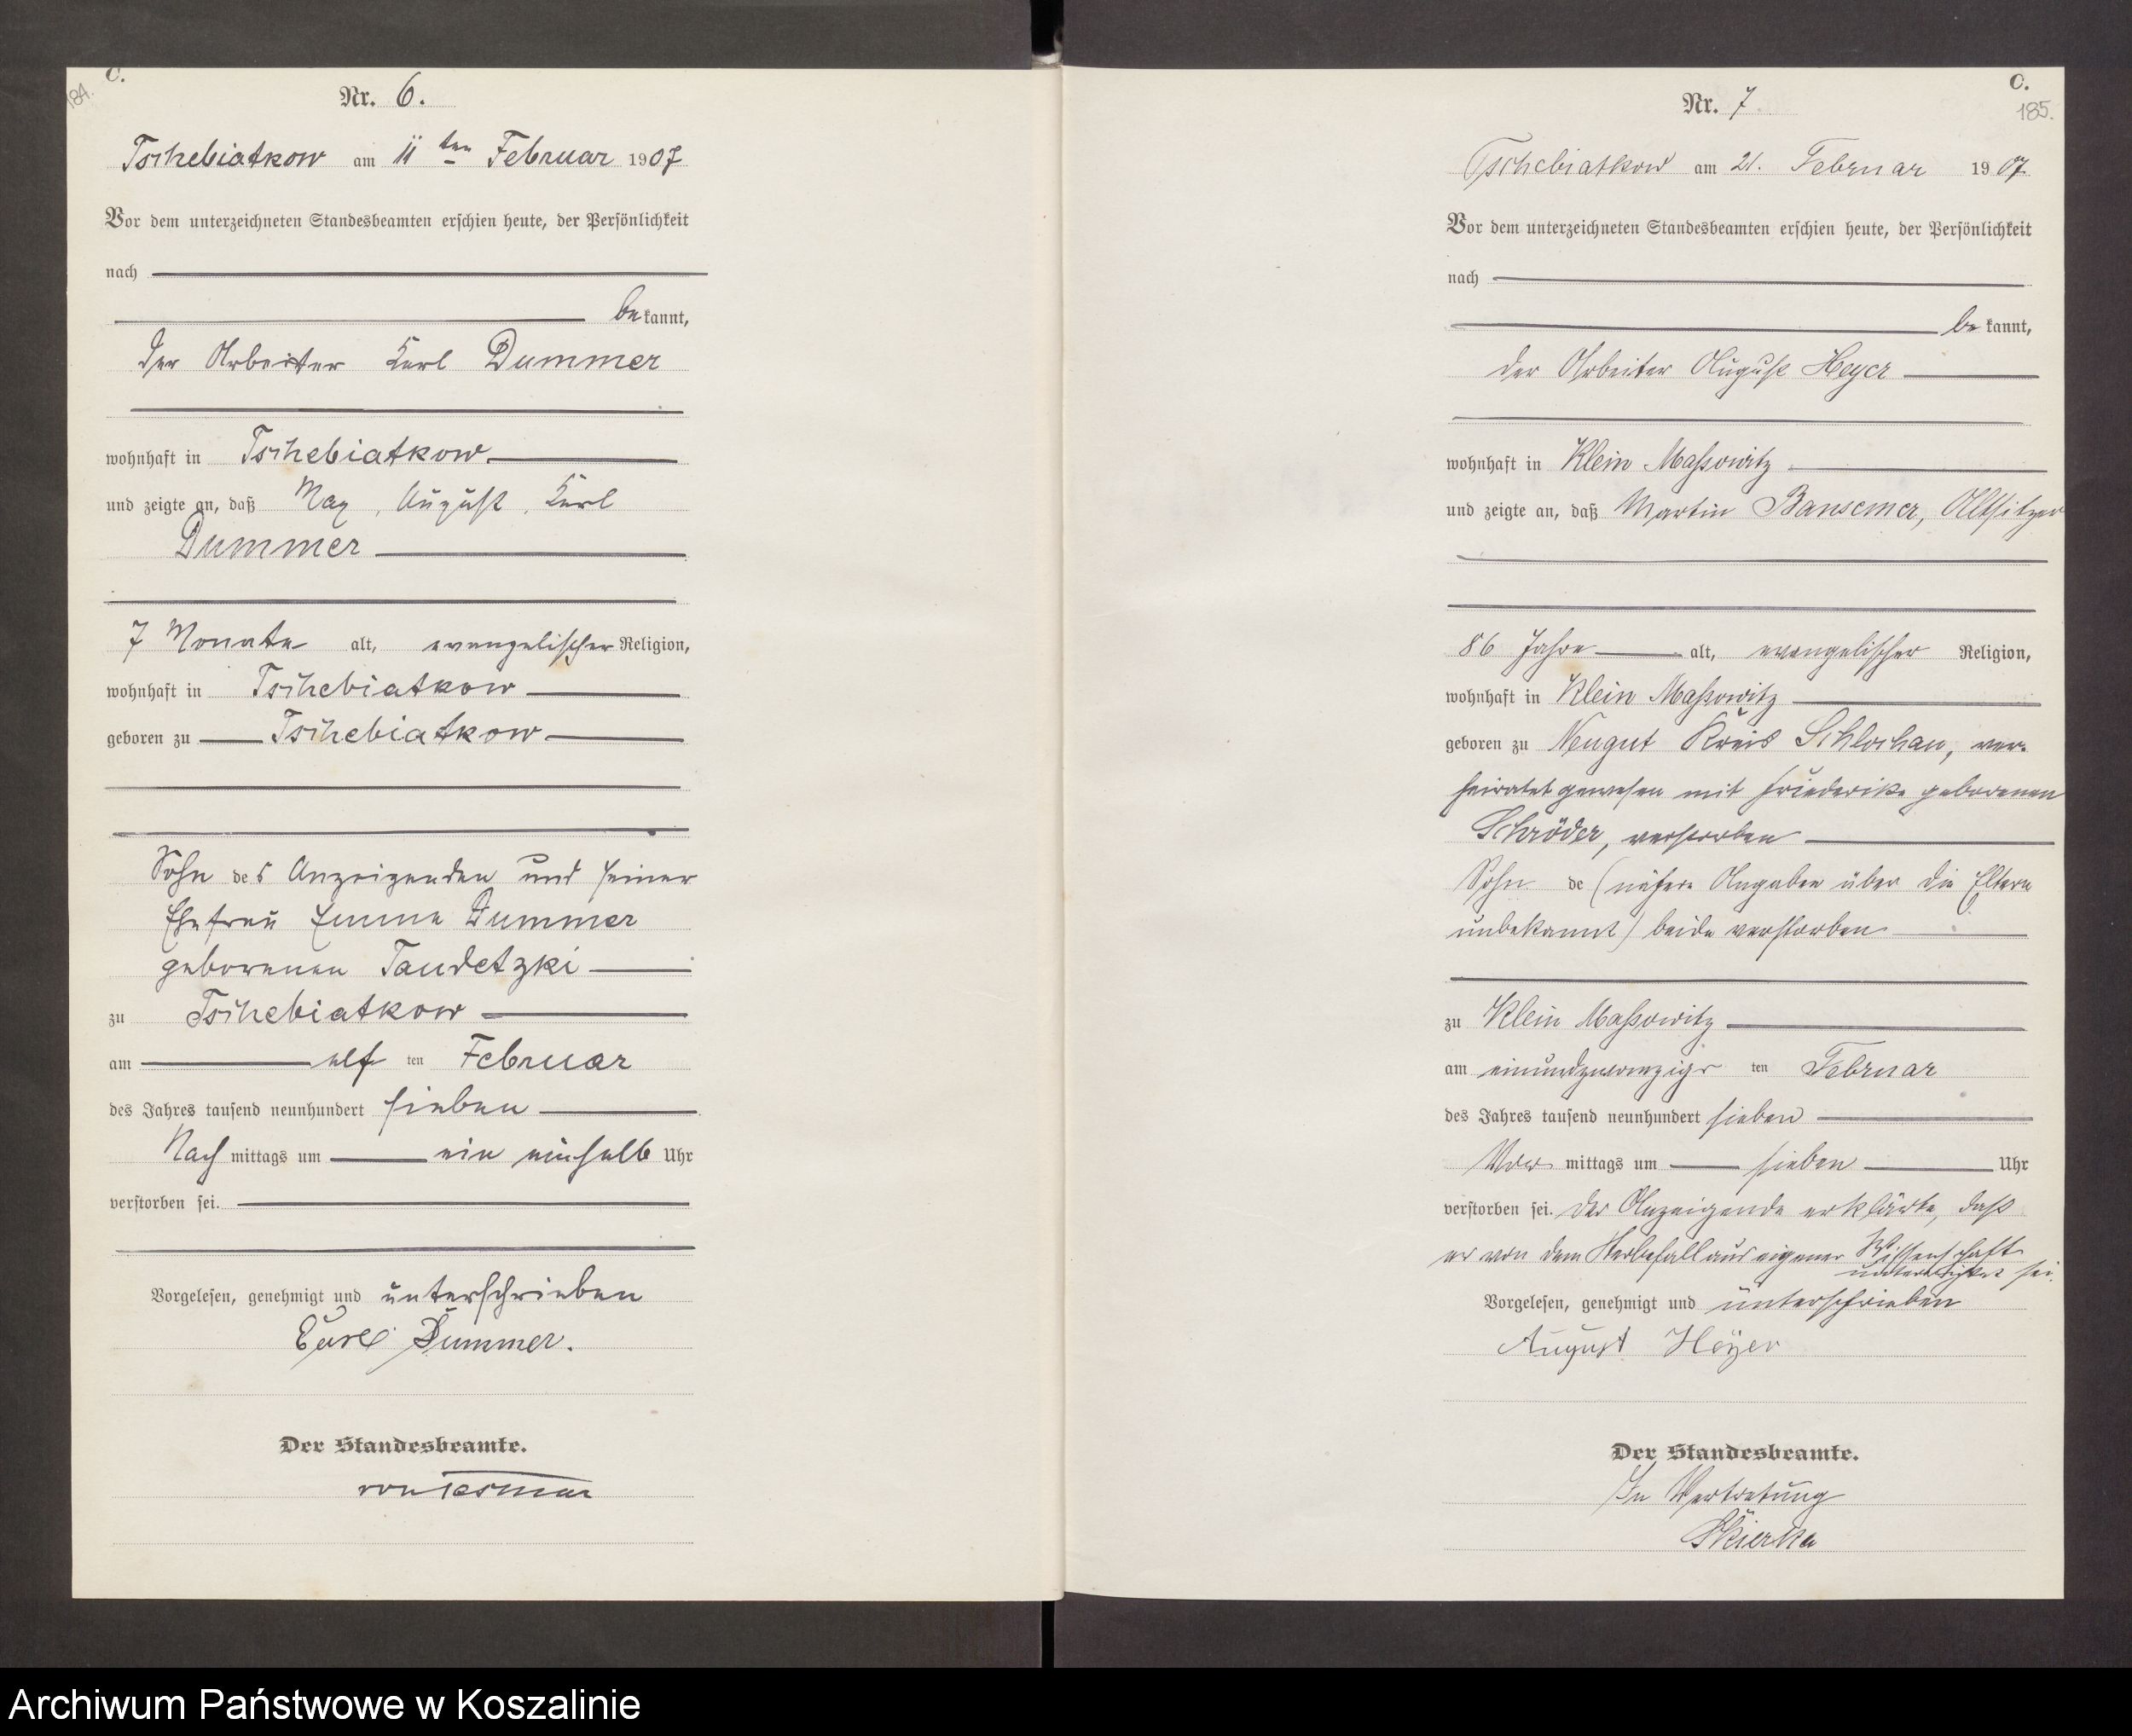 184.
C.
Nr. 6.
Tschebiatkow am 11 ten Februar 1907
Vor dem unterzeichneten Standesbeamten erschien heute, der Persönlichkeit
nach
bekannt,
der Arbeiter Karl Dummer
wohnhaft in Tschebiatkow
und zeigte an, daß Max, August, Karl
Dummer
7 Monate alt, evangelischer Religion,
wohnhaft in Tschebiatkow
geboren zu Tschebiatkow
Sohn des Anzeigenden und seiner
Ehefrau Emma Dummer
geborenen Taudetzki
zu Tschebiatkow
am elf ten Februar
des Jahres tausend neunhundert sieben
Nachmittags um ein einhalb Uhr
verstorben sei.
Vorgelesen, genehmigt und unterschrieben
Carl Dummer.
Der Standesbeamte.
von Tesmar
C.
185.
Nr. 7
Tschebiatkow am 21. Februar 1907
Vor dem unterzeichneten Standesbeamten erschien heute, der Persönlichkeit
nach
bekannt,
der Arbeiter August Heyer
wohnhaft in Klein Massowitz
und zeigte an, daß Martin Bansemer, Altsitzer
86 Jahre alt, evangelischer Religion,
wohnhaft in Klein Massowitz
geboren zu Neugut Kreis Schlochau, ver-
heiratet gewesen mit Friederike geborenen
Schröder, verstorben
Sohn de (nähere Angaben über die Eltern
unbekannt) beide verstorben
zu Klein Massowitz
am einundzwanzigs ten Februar
des Jahres tausend neunhundert sieben
Vor mittags um sieben Uhr
verstorben sei. Der Anzeigende erklärte, daß
er von dem Sterbefall aus eigener Wissenschaft
unterrichtet sei.
Vorgelesen, genehmigt und unterschrieben
August Heyer
Der Standesbeamte.
In Vertretung
Skierka
Archiwum Państwowe w Koszalinie